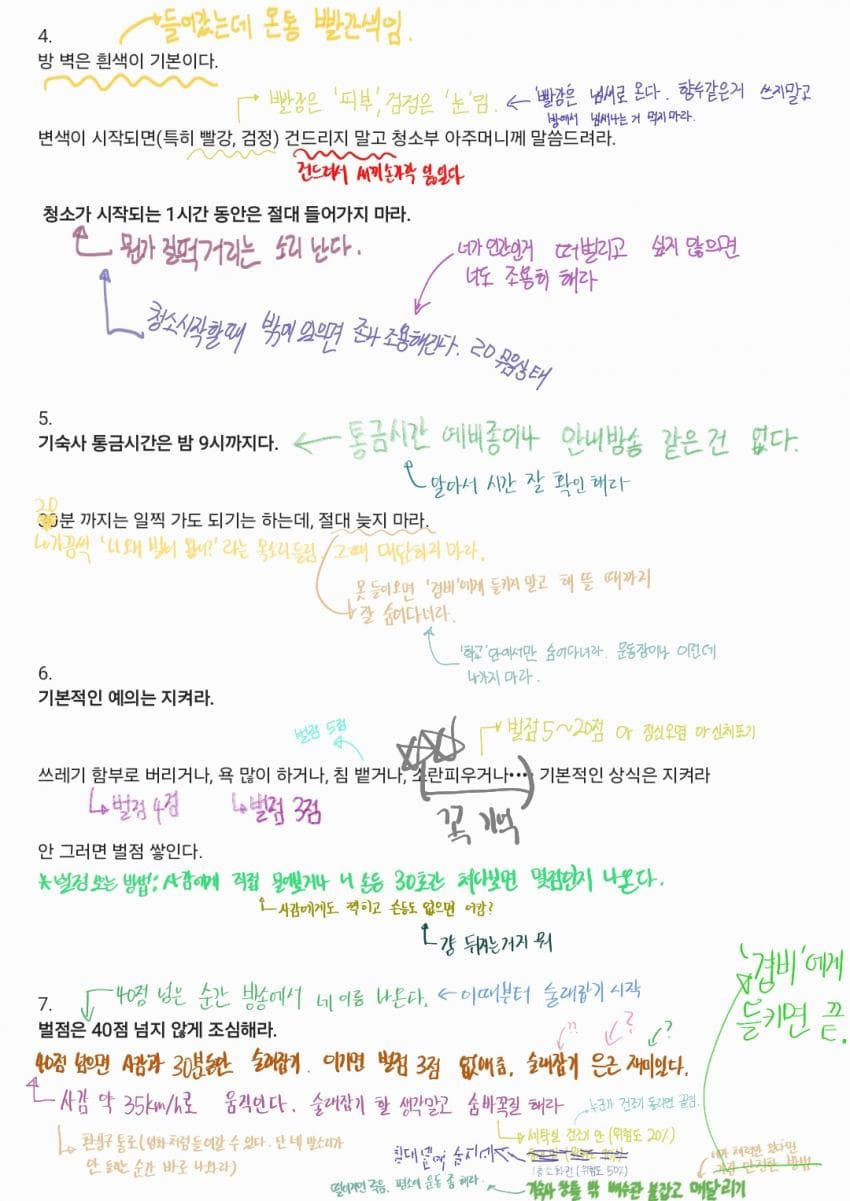 들어갔는데 온통 빨간색임.
4.
방 벽은 흰색이 기본이다.
빨강은 '피부', 검정은 '눈'임.
빨강은 냄새로 온다. 향수같은거 쓰지말고
방에서 냄새나는 거 먹지마라.
변색이 시작되면(특히 빨강, 검정) 건드리지 말고 청소부 아주머니께 말씀드려라.
건드려서 새끼손가락 잃었다
청소가 시작되는 1시간 동안은 절대 들어가지 마라.
뭔가 질퍽거리는 소리 난다.
너가 인간인거 떠벌리고 싶지 않으면
너도 조용히 해라
청소시작할때 밖에 있으면 존나 조용해진다. 20 무음상태
5.
기숙사 통금시간은 밤 9시까지다.
통금시간 예비종이나 안내방송 같은건 없다.
알아서 시간 잘 확인해라
20
30분 까지는 일찍 가도 되기는 하는데, 절대 늦지 마라.
가끔씩 '니 왜 벌써 왔어?' 라는 목소리 들림. 그때 대답하지마라.
못 들어오면 '경비'에게 들키지 말고 해 뜰 때까지
잘 숨어다녀라.
'학교' 안에서만 숨어다녀라. 운동장이나 이런데
나가지 마라.
6.
기본적인 예의는 지켜라.
벌점 5점
벌점 5~20점 or 정신오염 or 신체포기
쓰레기 함부로 버리거나, 욕 많이 하거나, 침 뱉거나, 소란피우거나···· 기본적인 상식은 지켜라
벌점 4점
벌점 3점
꼭 기억
안 그러면 벌점 쌓인다.
*벌점 보는 방법: 사감에게 직접 물어보거나 니 손등 30초간 쳐다보면 몇점인지 나온다.
사감에게도 찍히고 손등도 없으면 어캄?
걍 뒤지는거지 뭐
'경비'에게
들키면 끝.
40점 넘은 순간 방송에서 네 이름 나온다.
이때부터 술래잡기 시작
7.
벌점은 40점 넘지 않게 조심해라.
?? ? ?
40점 넘으면 사감과 30분동안 술래잡기. 이기면 벌점 3점 없애줌. 술래잡기 은근 재미있다.
사감 약 35km/h로 움직인다. 술래잡기 할 생각말고 숨바꼭질 해라
누군가 건조기 돌리면 끝임.
세탁실 건조기 안 (위험도 20%)
환풍구 통로 (영화처럼 들어갈 수 있다. 단 네 발소리가
안 들리는 순간 바로 나와라)
침대 밑에 숨지마
청소함 안 (위험도 50%)
떨어지면 죽음. 평소에 운동 좀 해라.
기숙사 창틀 밖 배수관 붙잡고 매달리기